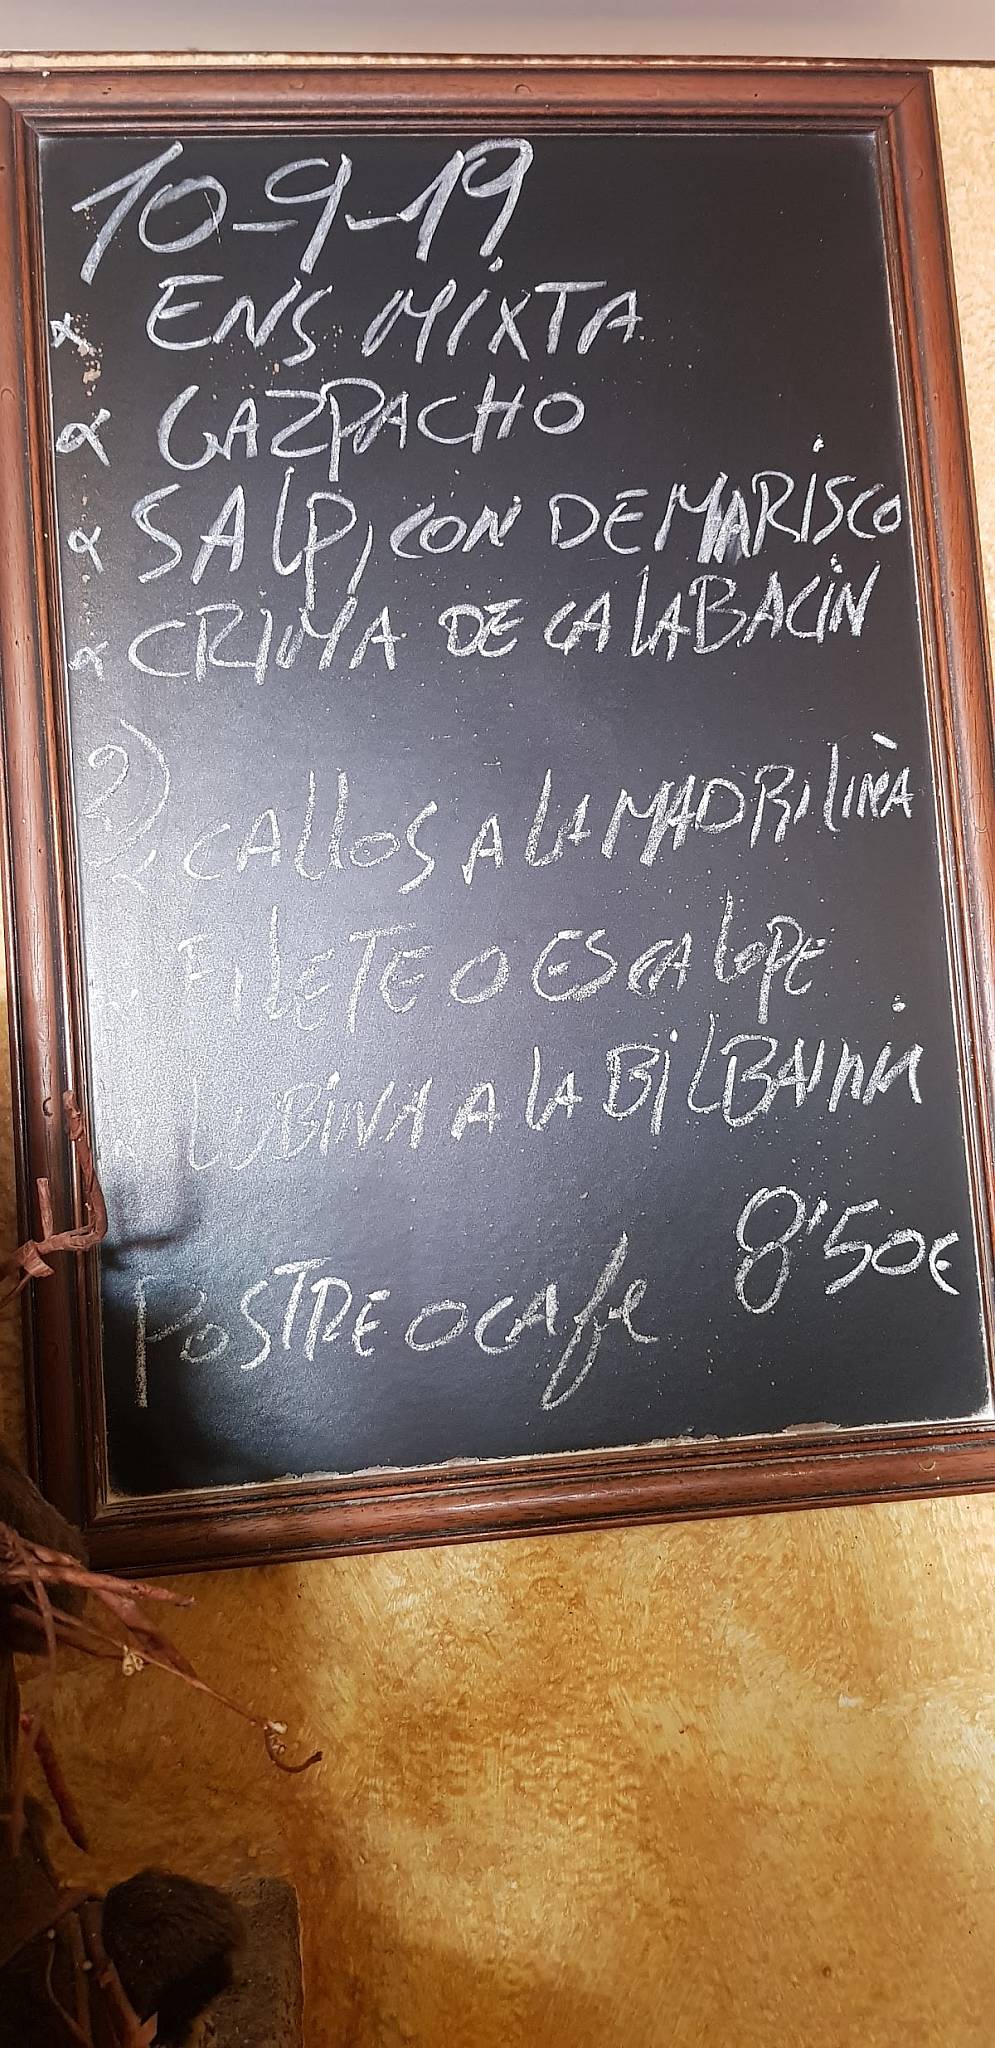 10-9-19
* ENS MIXTA
* GAZPACHO
* SALPICON DE MARISCO
* CREMA DE CALABACIN
2)
* CALLOS A LA MADRILEÑA
* FILETE O ESCALOPE
* LUBINA A LA BILBAINA
POSTRE O CAFE 8'50€